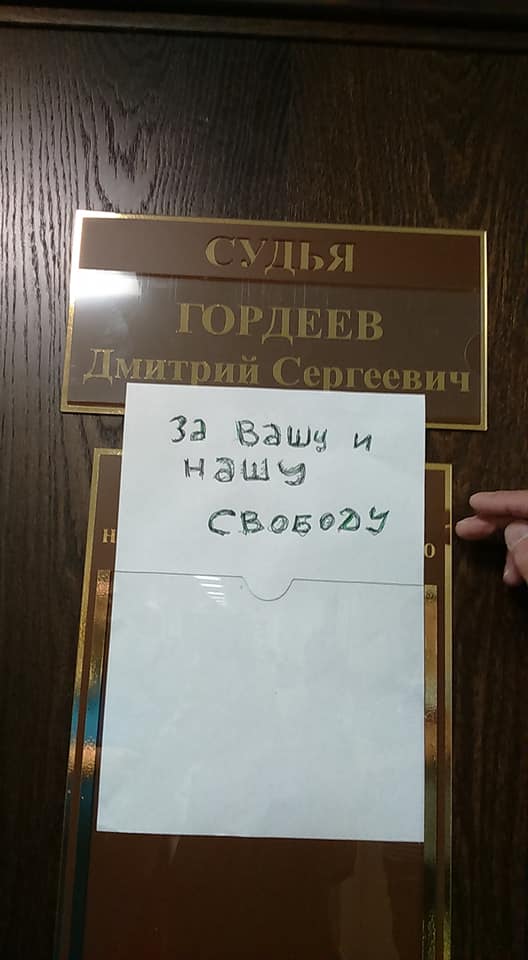 СУДЬЯ
ГОРДЕЕВ
Дмитрий Сергеевич
За Вашу и
нашу
СВОБОДУ